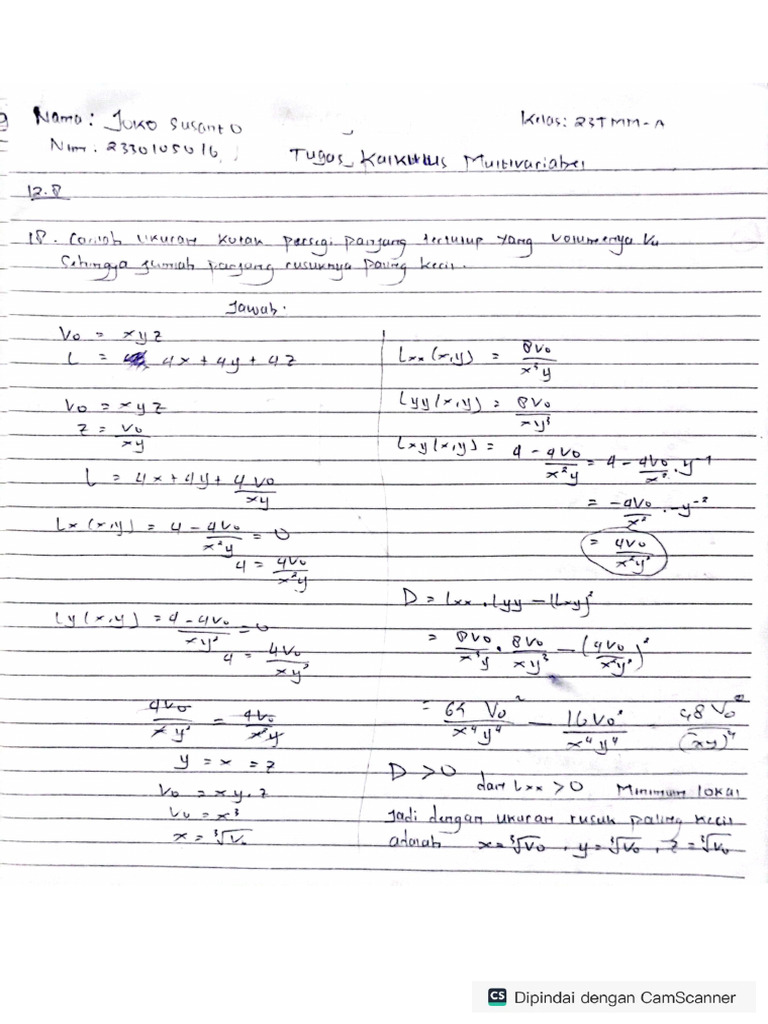 Nama: Joko Susanto
Kelas: 23TMM-A
Nim: 2330105016
Tugas Kalkulus Multivariabel
12.8
18. Carilah ukuran kotak persegi panjang tertutup yang volumenya V₀
Sehingga jumlah panjang rusuknya paling kecil.
Jawab.
V₀ = xyz
L = 4x + 4y + 4z
V₀ = xyz
z = V₀/xy
L = 4x + 4y + 4V₀/xy
Lx (x,y) = 4 - 4V₀/x²y = 0
4 = 4V₀/x²y
Ly (x,y) = 4 - 4V₀/xy² = 0
4 = 4V₀/xy²
4V₀/xy² = 4V₀/x²y
y = x = z
V₀ = xy.z
V₀ = x³
x = ∛V₀
Lxx (x,y) = 8V₀/x³y
Lyy (x,y) = 8V₀/xy³
Lxy (x,y) = 4 - 4V₀/x²y = 4 - 4V₀/x² . y⁻¹
= -4V₀/x² . -y⁻²
= 4V₀/x²y²
D = Lxx . Lyy - (Lxy)²
= 8V₀/x³y . 8V₀/xy³ - (4V₀/x²y²)²
= 64 V₀²/x⁴y⁴ - 16V₀²/x⁴y⁴ 48V₀²/(xy)⁴
D > 0 dan Lxx > 0 Minimum lokal
Jadi dengan ukuran rusuk paling kecil
adalah x = ∛V₀ , y = ∛V₀ , z = ∛V₀
CS Dipindai dengan CamScanner